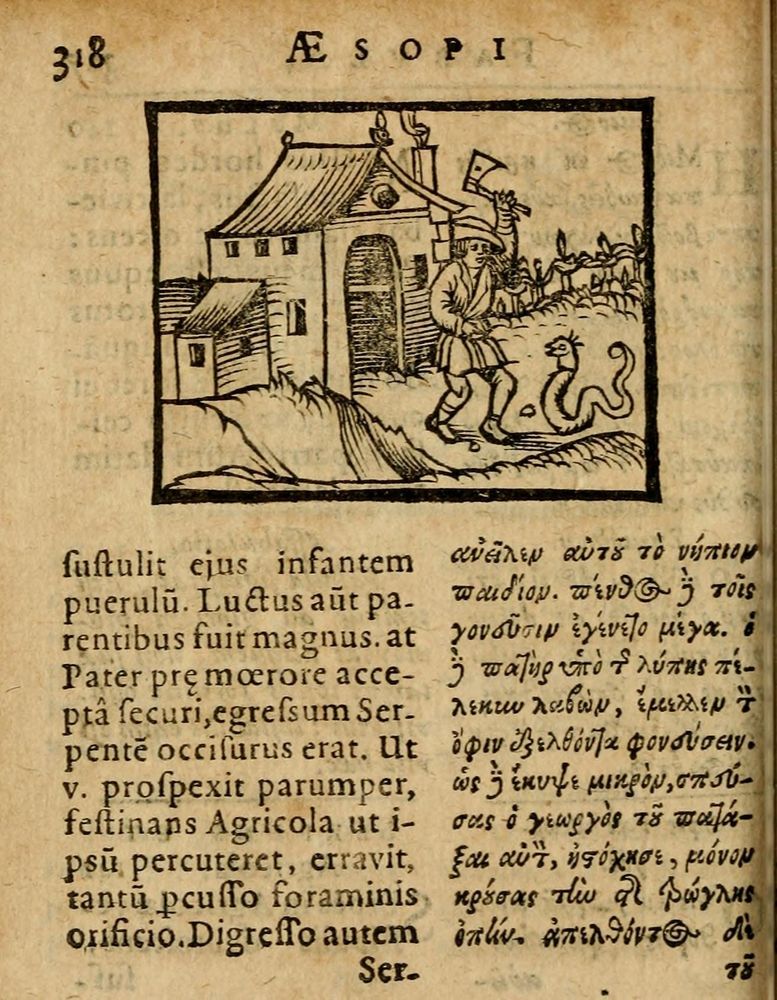 318 ÆSOPI
ſuſtulit ejus infantem
puerulũ. Luctus aũt pa-
rentibus fuit magnus. at
Pater pręmœrore acce-
ptâ ſecuri, egreſsum Ser-
pentẽ occiſurus erat. Ut
v. proſpexit parumper,
feſtinans Agricola ut i-
pſũ percuteret, erravit,
tantũ ꝑcuſſo foraminis
orificio. Digreſſo autem
Ser-
ἀνεῖλεν αὐτοῦ τὸ νήπιον
παιδίον. πένθος δὲ τοῖς
γονεῦσιν ἐγένετο μέγα. ὁ
δὲ πατὴρ ὑπὸ τῆς λύπης πέ-
λεκυν λαβὼν, ἔμελλεν τὸν
ὄφιν ἐξελθόντα φονεύσειν.
ὡς δὲ ἔκυψε μικρὸν, σπεύ-
σας ὁ γεωργὸς τοῦ πατά-
ξαι αὐτὸν, ἠστόχησε, μόνον
κρούσας τὴν τῆς τρώγλης
ὀπήν. ἀπελθόντος δὲ
τοῦ